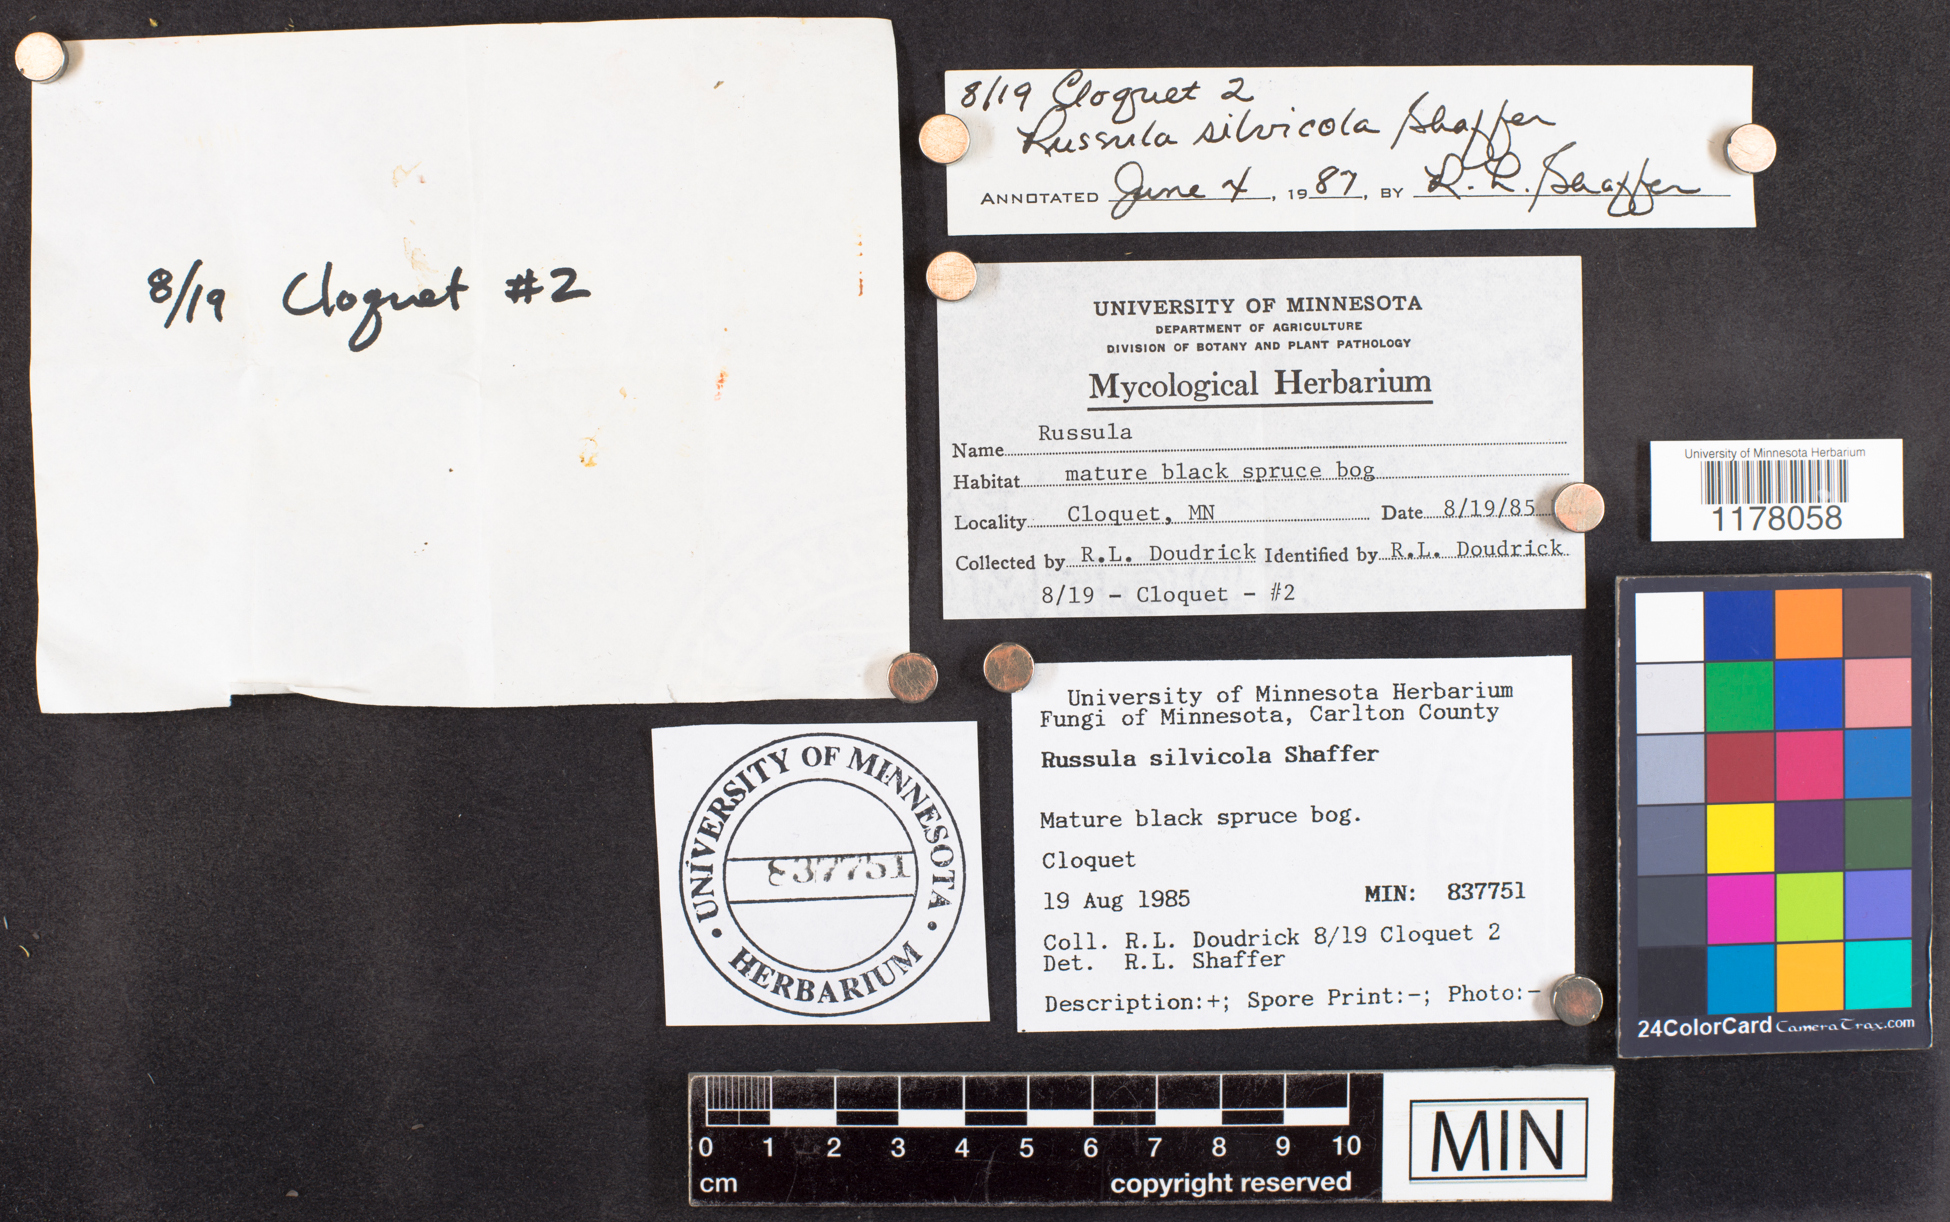 8/19 Cloquet #2
8/19 Cloquet 2
Russula silvicola Shaffer
ANNOTATED June 4, 1987, BY R. L. Shaffer
UNIVERSITY OF MINNESOTA
DEPARTMENT OF AGRICULTURE
DIVISION OF BOTANY AND PLANT PATHOLOGY
Mycological Herbarium
Name Russula
Habitat mature black spruce bog
Locality Cloquet, MN Date 8/19/85
Collected by R.L. Doudrick Identified by R.L. Doudrick
8/19 - Cloquet - #2
University of Minnesota Herbarium
1178058
University of Minnesota Herbarium
Fungi of Minnesota, Carlton County
Russula silvicola Shaffer
Mature black spruce bog.
Cloquet
19 Aug 1985 MIN: 837751
Coll. R.L. Doudrick 8/19 Cloquet 2
Det. R.L. Shaffer
Description:+; Spore Print:-; Photo:-
UNIVERSITY OF MINNESOTA
837751
• HERBARIUM •
24ColorCard CameraTrax.com
0 1 2 3 4 5 6 7 8 9 10
cm copyright reserved
MIN